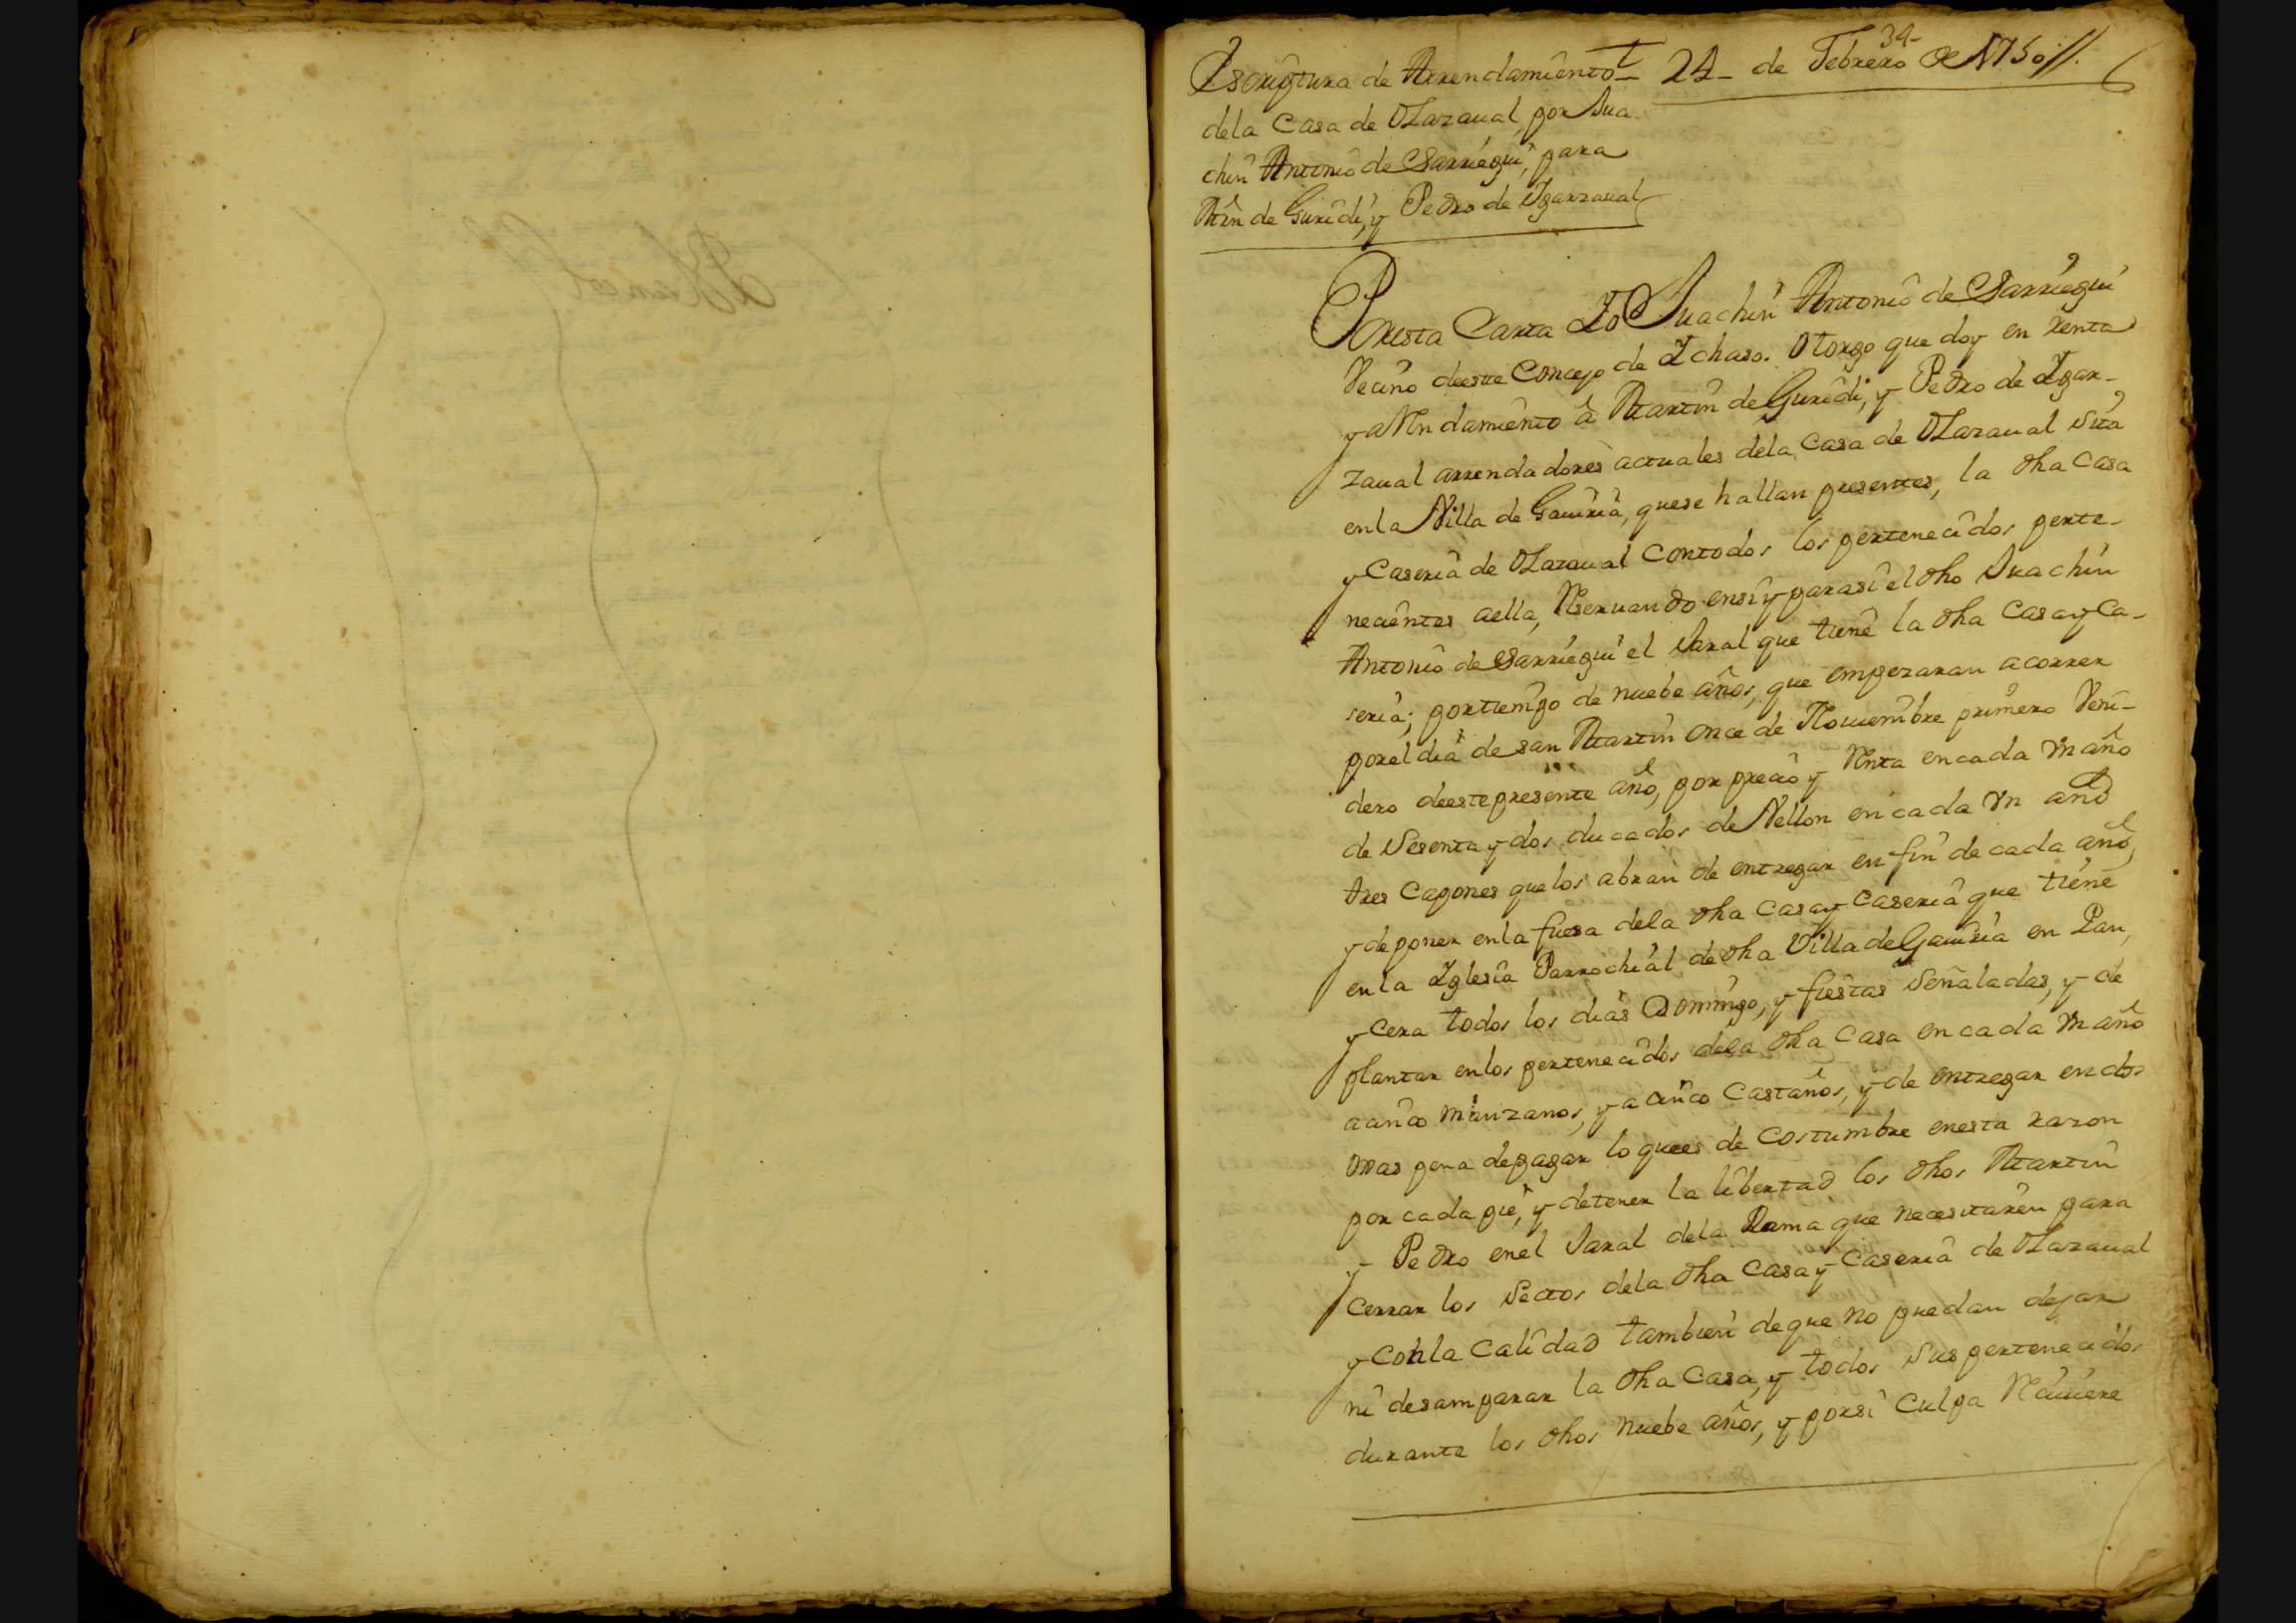 34
Escriptura de Arrendamiento
24 de Febrero de 1750//.
dela Casa de OLazaual, por Jua
chin Antonio de Sarriegui, para
Mrn de Guridi, y Pedro de Ygarzaual
Blanco
Poresta Carta Yo Juachin Antonio de Sarriegui
Vecino deeste Concejo de Ychaso. Otorgo que doy en renta
y aRendamiento â Martin de Guridi, y Pedro de Ygar-
zaual arrendadores actuales dela Casa de OLazaual Sita
enla Villa de Gauiria, quese hallan presentes, la dha Casa
y Caseria de OLazaual Contodos los pertenecidos perte-
necientes aella, Reseruando ensi y parasi el dho Juachin
Antonio de Sarriegui el Jaral que tiene la dha Casa y Ca-
seria; portiempo de nuebe años, que empezaran acorrer
porel dia de san Martin once de Nouiembre primero Veni-
dero deestepresente año, por precio y Renta encada Vn año
de Sesenta y dos ducados de Vellon en cada Vn año
tres Capones quelos abran de entregar en fin de cada año,
y de poner enla fuesa dela dha Casa y Caseria que tiene
enla Yglesia Parrochial de dha Villa de Gauiria en Pan,
y Cera todos los dias Domingo, y fiestas Señaladas, y de
plantar enlos pertenecidos dela dha Casa encada Vn año
acinco manzanos, y a cinco Castaños, y de entregar endos
oxas pena depagar lo quees de Costumbre enesta razon
por cada pie, y detener la libertad los dhos Martin
y Pedro enel Jaral dela Rama que necesitaren para
Cerrar los Setos dela dha Casa y Caseria de OLazaual
y Conla Calidad tambien deque no puedan dejar
ni desamparar la dha Casa, y todos Sus pertenecidos
durante los dhos nuebe años, y porsi Culpa Reciuiere